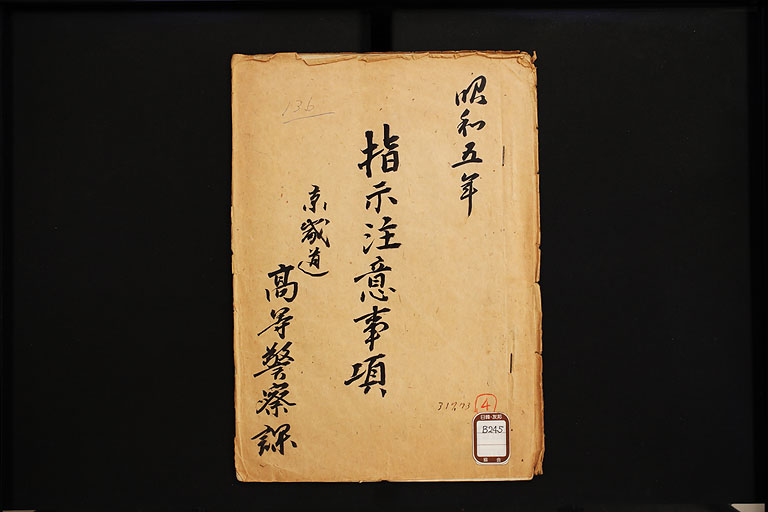 昭和五年
指示注意事項
京畿道
高等警察課
136
4
日韓・友邦
B245